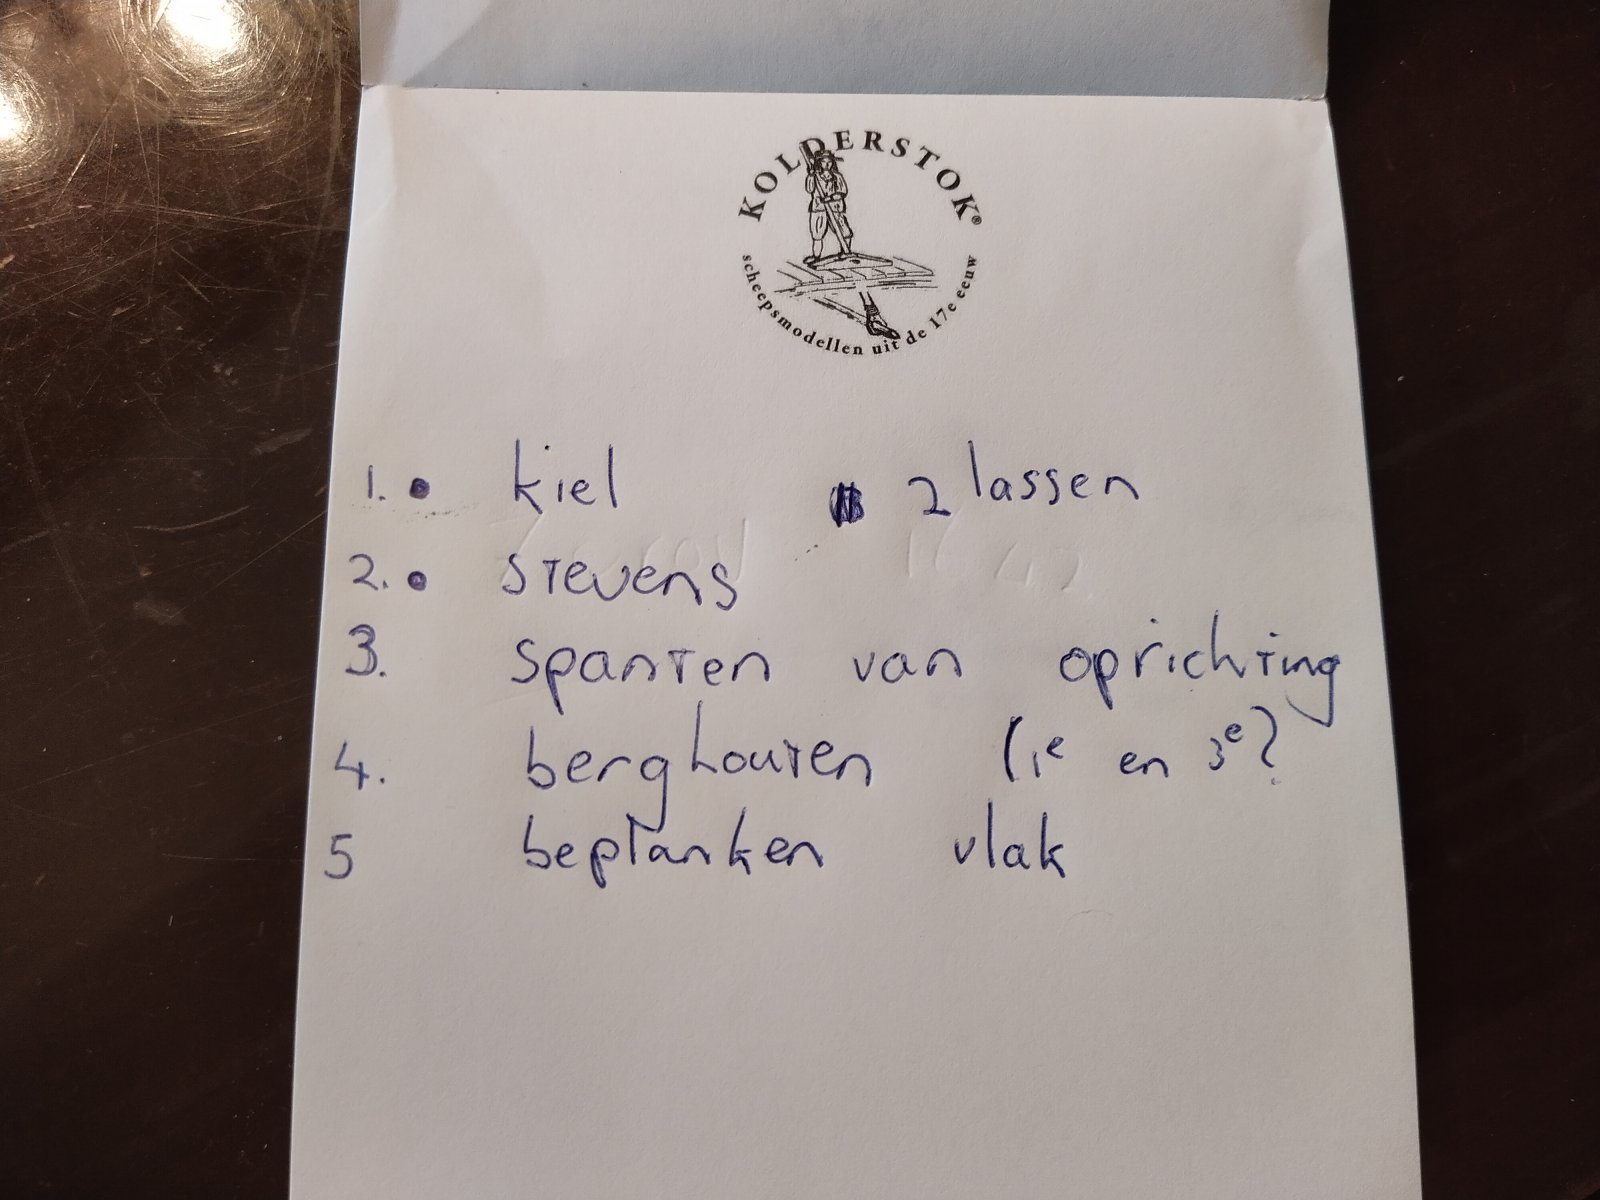 KOLDERSTOK®
scheepsmodellen uit de 17e eeuw
1. • kiel 2 lassen
2. • stevens
3. spanten van oprichting
4. berghouten (1e en 3e?
5 beplanken vlak